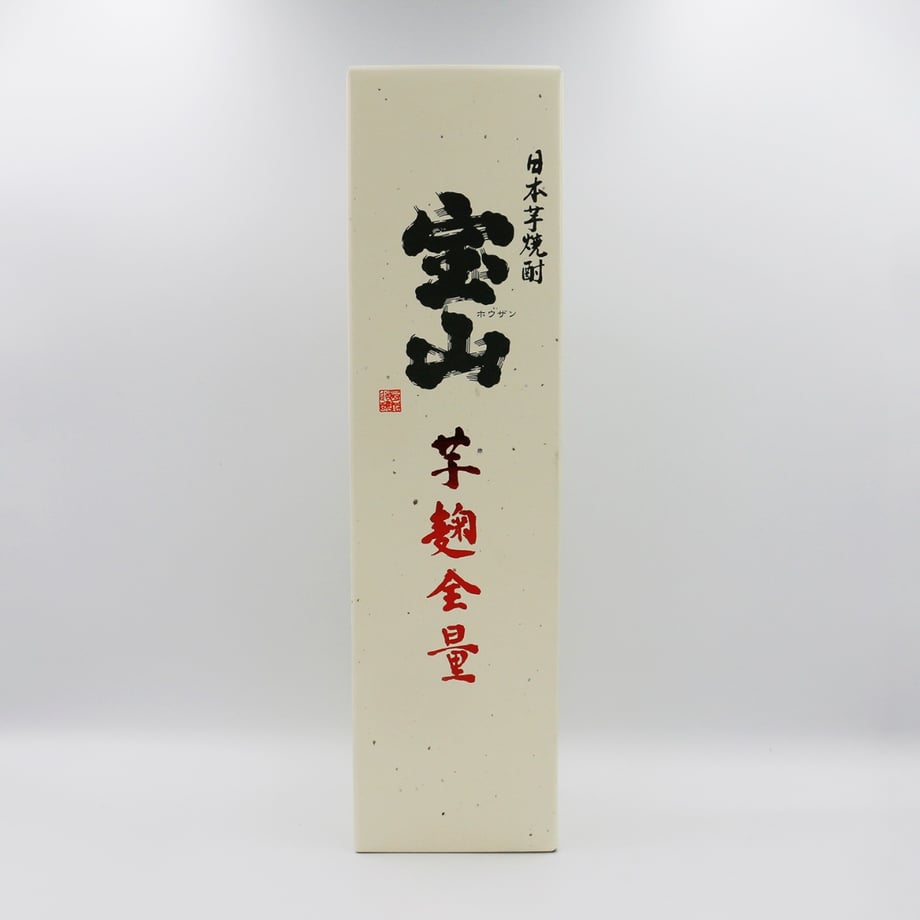 日本芋焼酎
宝山
ホウザン
芋麹全量